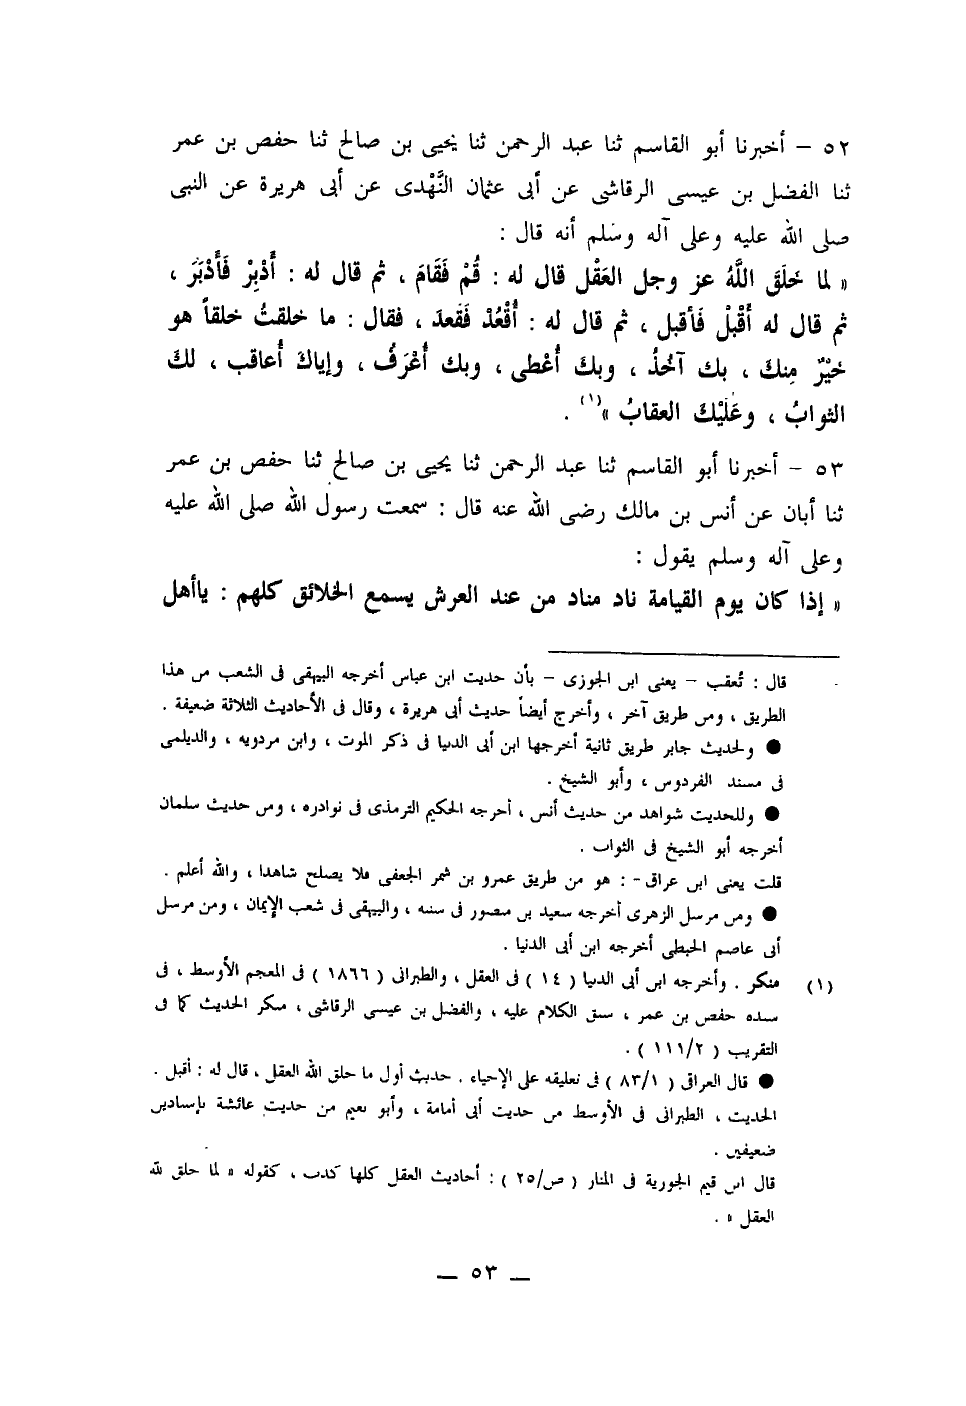 ٥٢ – أخبرنا أبو القاسم ثنا عبد الرحمن ثنا يحيى بن صالح ثنا حفص بن عمر
ثنا الفضل بن عيسى الرقاشى عن أبى عثمان النَّهْدى عن أبى هريرة عن النبى
صلى الله عليه وعلى آله وسلم أنه قال :
« لما خَلَقَ اللَّهُ عز وجل العَقْل قال له : قُمْ فَقَامَ ، ثم قال له : أَدْبِرْ فَأَدْبَرَ ،
ثم قال له أَقْبِلْ فَأقبل ، ثم قال له : أُقْعُدْ فَقَعدَ ، فقال : ما خلقتُ خلقاً هو
خَيْرٌ مِنكَ ، بك آخُذُ ، وبكَ أُعْطى ، وبك أُعْرَفُ ، وإياكَ أُعاقب ، لكَ
الثوابُ ، وعَلَيْكَ العقابُ »(١) .
٥٣ – أخبرنا أبو القاسم ثنا عبد الرحمن ثنا يحيى بن صالح ثنا حفص بن عمر
ثنا أبان عن أنس بن مالك رضى الله عنه قال : سمعت رسول الله صلى الله عليه
وعلى آله وسلم يقول :
« إذا كان يوم القيامة ناد مناد من عند العرش يسمع الخلائق كلهم : ياأهل
قال : تُعقب – يعنى ابن الجوزى – بأن حديث ابن عباس أخرجه البيهقى فى الشعب من هذا
الطريق ، ومن طريق آخر ، وأخرج أيضاً حديث أبى هريرة ، وقال فى الأحاديث الثلاثة ضعيفة .
● ولحديث جابر طريق ثانية أخرجها ابن أبى الدنيا فى ذكر الموت ، وابن مردويه ، والديلمى
فى مسند الفردوس ، وأبو الشيخ .
● وللحديث شواهد من حديث أنس ، أخرجه الحكيم الترمذى فى نوادره ، ومن حديث سلمان
أخرجه أبو الشيخ فى الثواب .
قلت يعنى ابن عراق - : هو من طريق عمرو بن شمر الجعفى فلا يصلح شاهدا ، والله أعلم .
● ومن مرسل الزهرى أخرجه سعيد بن منصور فى سننه ، والبيهقى فى شعب الإيمان ، ومن مرسل
أبى عاصم الحبطى أخرجه ابن أبى الدنيا .
(١) منكر . وأخرجه ابن أبى الدنيا ( ١٤ ) فى العقل ، والطبرانى ( ١٨٦٦ ) فى المعجم الأوسط ، فى
سنده حفص بن عمر ، سبق الكلام عليه ، والفضل بن عيسى الرقاشى ، منكر الحديث كما فى
التقريب ( ١١١/٢ ) .
● قال العراقى ( ٨٣/١ ) فى تعليقه على الإحياء . حديث أول ما خلق الله العقل ، قال له : أقبل .
الحديث ، الطبرانى فى الأوسط من حديث أبى أمامة ، وأبو نعيم من حديث عائشة بإسنادين
ضعيفين .
قال ابن قيم الجوزية فى المنار ( ص/٢٥ ) : أحاديث العقل كلها كذب ، كقوله « لما خلق لله
العقل » .
— ٥٣ —